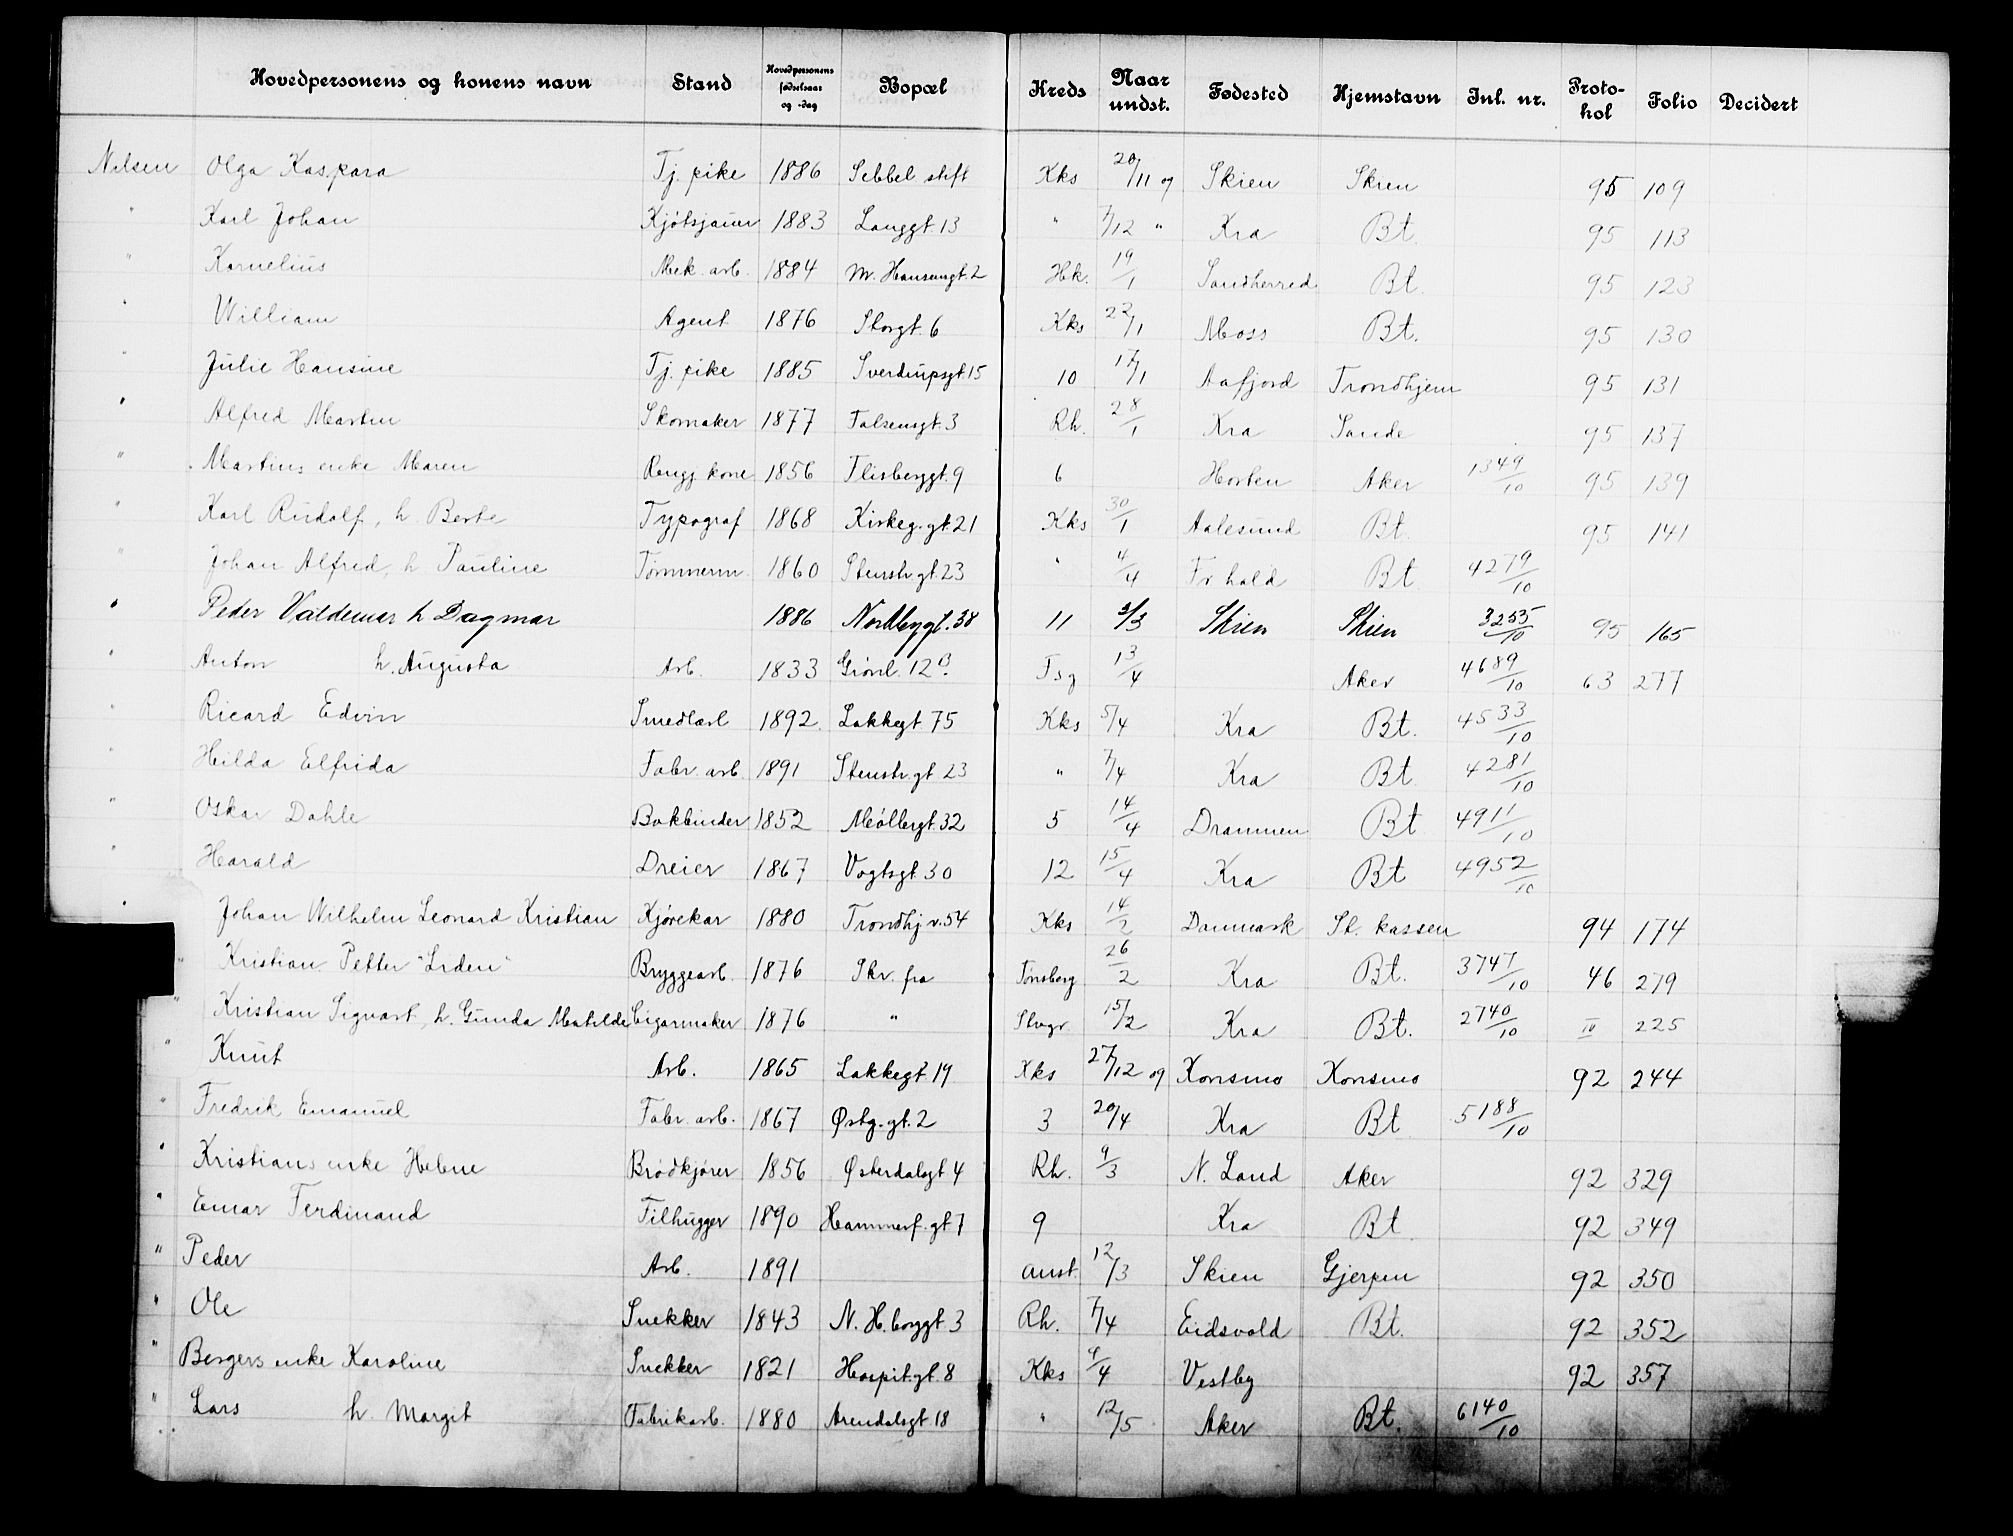 Hovedpersonens og konens navn Stand Hovedpersonens fødselsaar og -dag Bopæl Kreds Naar undst. Fødested Hjemstavn Inl. nr. Protokol Folio Decidert
Nilsen Olga Kaspara Tj. pike 1886 Sebbel. stift Kks 20/11 og Skien Skien 95 109
" Karl Johan Kjøtsjauer 1883 Langgt. 13 " 7/12 " Kra Bt. 95 113
" Kornelius Mek. arb. 1884 M. Hansensgt. 2 Hk. 19/1 Sandherred Bt. 95 123
" William Agent 1876 Storgt. 6 Kks 22/1 Moss Bt. 95 130
" Julie Hansine Tj. pike 1885 Sverdrupsgt. 15 10 17/1 Aafjord Trondhjem 95 131
" Alfred Martin Skomaker 1877 Falsensgt. 3 Rh. 28/1 Kra Sande 95 137
" Martins enke Maren Rengj. kone 1856 Flisberggt. 9 6 Horten Aker 1349/10 95 139
" Karl Rudolf, h. Berte Typograf 1868 Kirkeg. gt. 21 Kks 30/1 Aalesund Bt. 95 141
" Johan Alfred, h. Pauline Tømmerm. 1860 Stenstr. gt. 23 " 4/4 Fr. hald Bt 4279/10
" Peder Valdemar h Dagmar 1886 Nordbygt. 38 11 3/3 Skien Skien 3255/10 95 165
" Anton h. Augusta Arb. 1833 Grønl. 12 B. Fsg 13/4 Aker 4689/10 63 277
" Ricard Edvin Smedlærl 1892. Lakkegt. 75 Kks 5/4 Kra Bt. 4533/10
" Hilda Elfrida Fabr. arb. 1891 Stenstr. gt. 23 " 7/4 Kra Bt. 4281/10
" Oskar Dahle Bokbinder 1852 Møllergt. 32 5 14/4 Drammen Bt 4911/10
" Harald Dreier 1867 Vogtsgt. 30 12 15/4 Kra Bt 4952/10
" Johan Wilhelm Leonard Kristian Kjørekar 1880 Trondhj. v. 54 Kks 14/2 Danmark St. kassen 94 174
" Kristian Petter "Liden" Bryggearb. 1876 Skr. fra Tønsberg 26/2 Kra Bt. 3747/10 46 279
" Kristian Sigvart, h. Gunda Matilde Cigarmaker 1876 " Stvgr. 15/2 Kra Bt. 2740/10 IV 225
" Knut Arb. 1865 Lakkegt. 19 Kks 27/12 og Konsmo Konsmo 92 244
" Fredrik Emanuel Fabr. arb. 1867 Østg. gt. 2 3 20/4 Kra Bt 5188/10
" Kristians enke Helene Brødkjører 1856 Østerdalsgt 4 Rh. 9/3 N. Land Aker 92 329
" Einar Ferdinand Filhugger 1890 Hammerf. gt 7 9 Kra Bt 92 349
" Peder Arb. 1891 anst. 12/3 Skien Gjerpen 92 350
" Ole Snekker 1843 N. H. borggt. 3 Rh. 7/4 Eidsvold Bt. 92 352
" Bergers enke Karoline Snekker 1821 Hospit. gt. 8 Kks 9/4 Vestby 92 357
" Lars h. Margit Fabrikarb. 1880 Arendalsgt. 18 " 12/5 Aker Bt. 6140/10